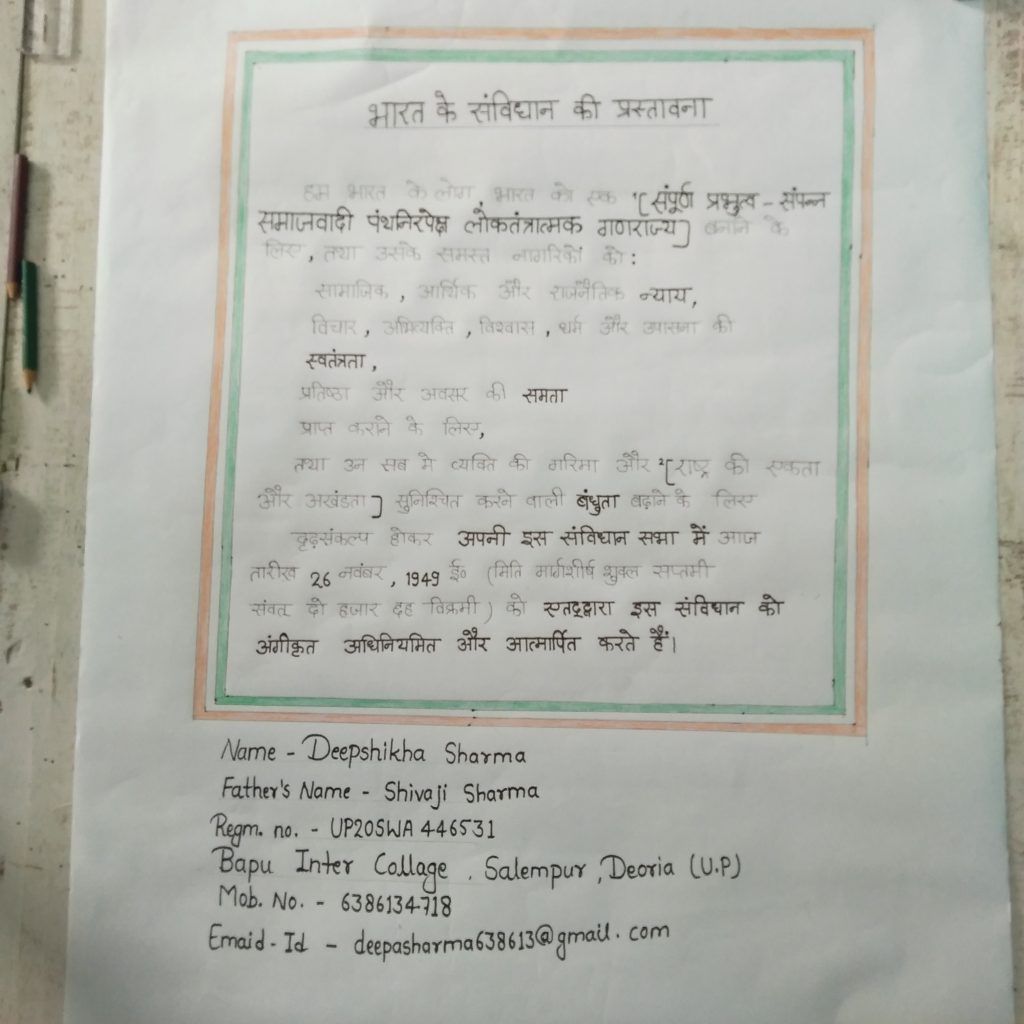 भारत के संविधान की प्रस्तावना
हम भारत के लोग, भारत को एक ¹[संपूर्ण प्रभुत्व - संपन्न
समाजवादी पंथनिरपेक्ष लोकतंत्रात्मक गणराज्य] बनाने के
लिए, तथा उसके समस्त नागरिकों को:
सामाजिक, आर्थिक और राजनैतिक न्याय,
विचार, अभिव्यक्ति, विश्वास, धर्म और उपासना की
स्वतंत्रता,
प्रतिष्ठा और अवसर की समता
प्राप्त कराने के लिए,
तथा उन सब मे व्यक्ति की गरिमा और ²[राष्ट्र की एकता
और अखंडता] सुनिश्चित करने वाली बंधुता बढ़ाने के लिए
दृढ़संकल्प होकर अपनी इस संविधान सभा में आज
तारीख 26 नवंबर, 1949 ई० (मिति मार्गशीर्ष शुक्ल सप्तमी
संवत् दो हजार छह विक्रमी) को एतद्द्वारा इस संविधान को
अंगीकृत अधिनियमित और आत्मार्पित करते हैं।
Name - Deepshikha Sharma
Father's Name - Shivaji Sharma
Regm. no. - UP20SWA446531
Bapu Inter Collage, Salempur, Deoria (U.P)
Mob. No. - 6386134718
Emaid-Id - deepasharma638613@gmail.com